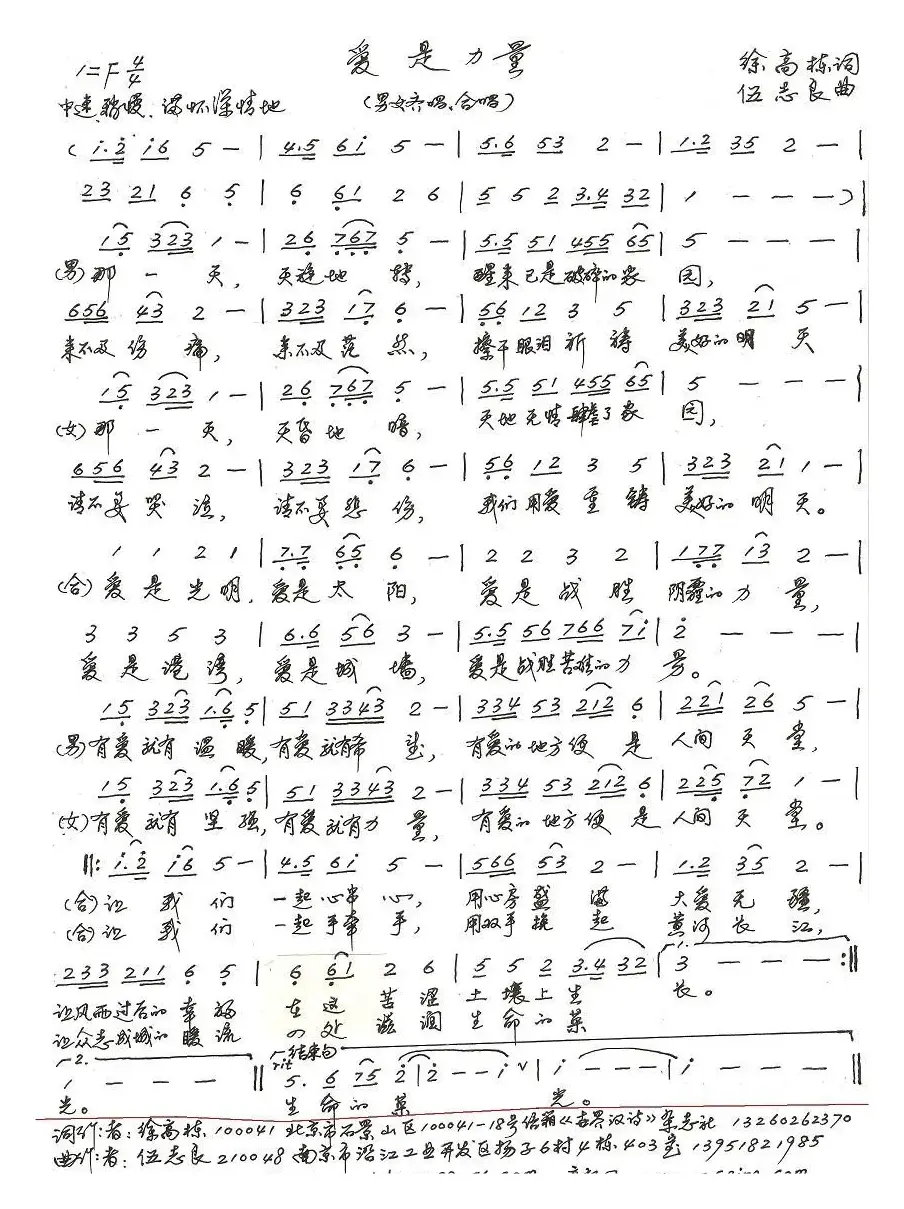 爱是力量
1=F 4/4
徐高栋词
中速稍慢、满怀深情地
(男女齐唱、合唱)
伍志良曲
( i.2 i6 5 — | 4.5 6i 5 — | 5.6 53 2 — | 1.2 35 2 — |
23 21 6 5 | 6 61 2 6 | 5 5 2 3.4 32 | 1 — — — )|
15 323 1 — | 26 767 5 — | 5.5 51 455 65 | 5 — — — |
(男)那一天, 天旋地转, 醒来已是破碎的家园,
656 43 2 — | 323 17 6 — | 56 12 3 5 | 323 21 5 — |
来不及伤痛, 来不及茫然, 擦干眼泪祈祷美好的明天
15 323 1 — | 26 767 5 — | 5.5 51 455 65 | 5 — — — |
(女)那一天, 天昏地暗, 天地无情肆虐了家园,
656 43 2 — | 323 17 6 — | 56 12 3 5 | 323 21 1 — |
请不要哭泣, 请不要悲伤, 我们用爱重铸美好的明天。
1 1 2 1 | 7.7 65 6 — | 2 2 3 2 | 177 13 2 — |
(合)爱是光明, 爱是太阳, 爱是战胜阴霾的力量,
3 3 5 3 | 6.6 56 3 — | 5.5 56 766 7i | 2 — — — |
爱是港湾, 爱是城墙, 爱是战胜苦难的力量。
15 323 1.6 5 | 51 3343 2 — | 334 53 212 6 | 221 26 5 — |
(男)有爱就有温暖, 有爱就有希望, 有爱的地方便是人间天堂,
15 323 1.6 5 | 51 3343 2 — | 334 53 212 6 | 225 72 1 — |
(女)有爱就有坚强, 有爱就有力量, 有爱的地方便是人间天堂。
‖: i.2 i6 5 — | 4.5 6i 5 — | 566 53 2 — | 1.2 35 2 — |
(合)让我们一起心牵心, 用心房盛满大爱无疆,
(合)让我们一起手牵手, 用双手挽起黄河长江,
1.
233 211 6 5 | 6 61 2 6 | 5 5 2 3.4 32 | 3 — — — :‖
让风雨过后的幸福在这苦涩土壤上生长。
让众志成城的暖流 处滋润生命的菜
2. rit 结束句
1 — — — ‖ 5. 6 75 2 | 2 — — i ∨ | i — — — | i — — — ‖
光。 生命的菜光。
词作者: 徐高栋 100041 北京市石景山区100041-18号信箱《世界汉诗》杂志社 13260262370
曲作者: 伍志良 210048 南京市沿江工业开发区扬子6村4栋403室 13951821985